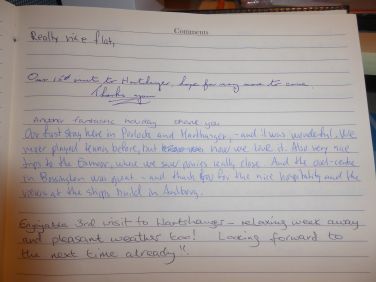 Comments
Really nice flat,
Our 1st visit to Hartshanger, hope for many more to come.
Thanks again
Another fantastic holiday thank you
Our first stay here in Porlock and Harthanger, - and it was wonderful. We
never played tennis before, but now we love it. Also very nice
trips to the Exmoor, where we saw ponies really close. And the owl-centre
in was great - and thank you for the nice hospitality and the
views at the ships build in
Enjoyable 3rd visit to Hartshanger - relaxing week away
and pleasant weather too! Looking forward to
the next time already!!